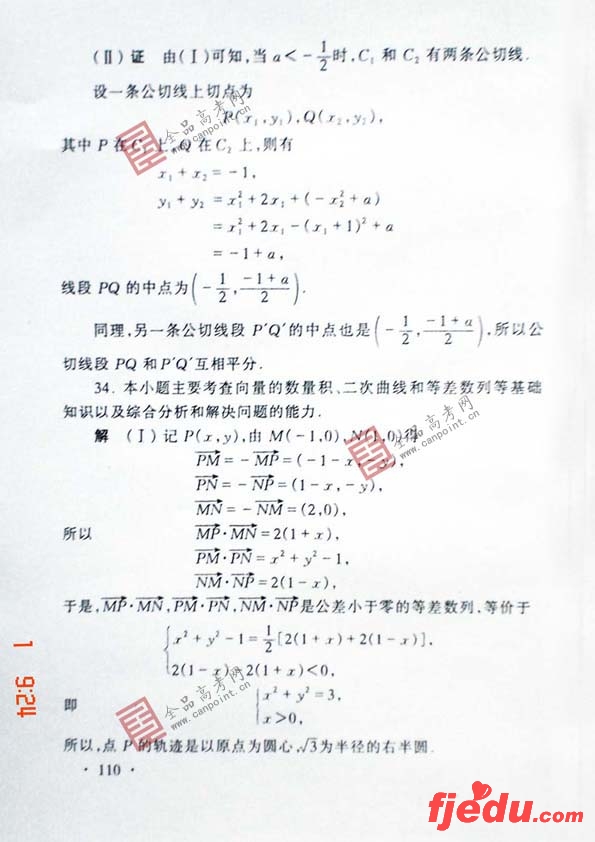 (Ⅱ) 证 由(Ⅰ)可知,当 a < -1/2 时, C₁ 和 C₂ 有两条公切线.
设一条公切线上切点为
P(x₁,y₁),Q(x₂,y₂),
其中 P 在 C₁ 上,Q 在 C₂ 上,则有
x₁ + x₂ = -1,
y₁ + y₂ = x₁² + 2x₁ + (-x₂² + a)
= x₁² + 2x₁ - (x₁ + 1)² + a
= -1 + a,
线段 PQ 的中点为(-1/2, (-1+a)/2).
同理,另一条公切线段 P′Q′的中点也是(-1/2, (-1+a)/2),所以公
切线段 PQ 和 P′Q′互相平分.
34. 本小题主要考查向量的数量积、二次曲线和等差数列等基础
知识以及综合分析和解决问题的能力.
解 (Ⅰ) 记 P(x,y),由 M(-1,0),N(1,0)得
PM = -MP = (-1-x,-y),
PN = -NP = (1-x,-y),
MN = -NM = (2,0),
所以 MP·MN = 2(1+x),
PM·PN = x² + y² - 1,
NM·NP = 2(1-x),
于是,MP·MN,PM·PN,NM·NP是公差小于零的等差数列,等价于
{x² + y² - 1 = 1/2[2(1+x)+2(1-x)],
2(1-x)-2(1+x)<0,
即 {x² + y² = 3,
x>0,
所以,点 P 的轨迹是以原点为圆心,√3为半径的右半圆.
· 110 ·
全品高考网
www.canpoint.cn
全品高考网
www.canpoint.cn
全品高考网
www.canpoint.cn
全品高考网
www.canpoint.cn
1 9:24
fjedu.com